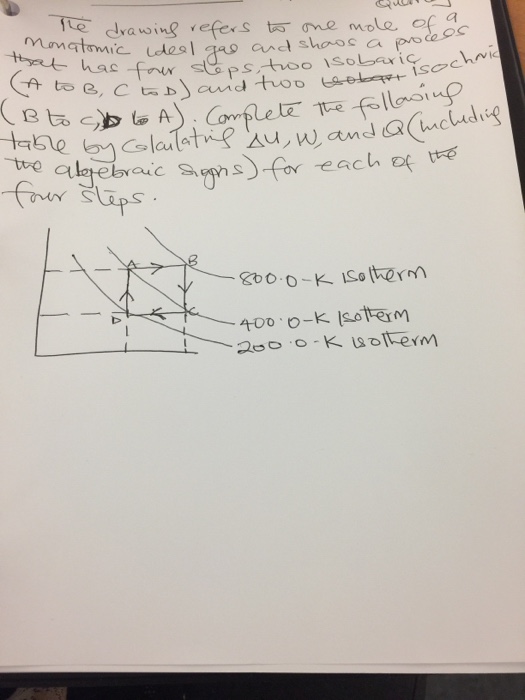 The drawing refers to one mole of a
monatomic ideal gas and shows a process
that has four steps, two isobaric
(A to B, C to D) and two isochoric
(B to C, D to A). Complete the following
table by calculating ΔU, W, and Q (including
the algebraic signs) for each of the
four steps.
A B
800.0-K Isotherm
D C
400.0-K Isotherm
200.0-K isotherm